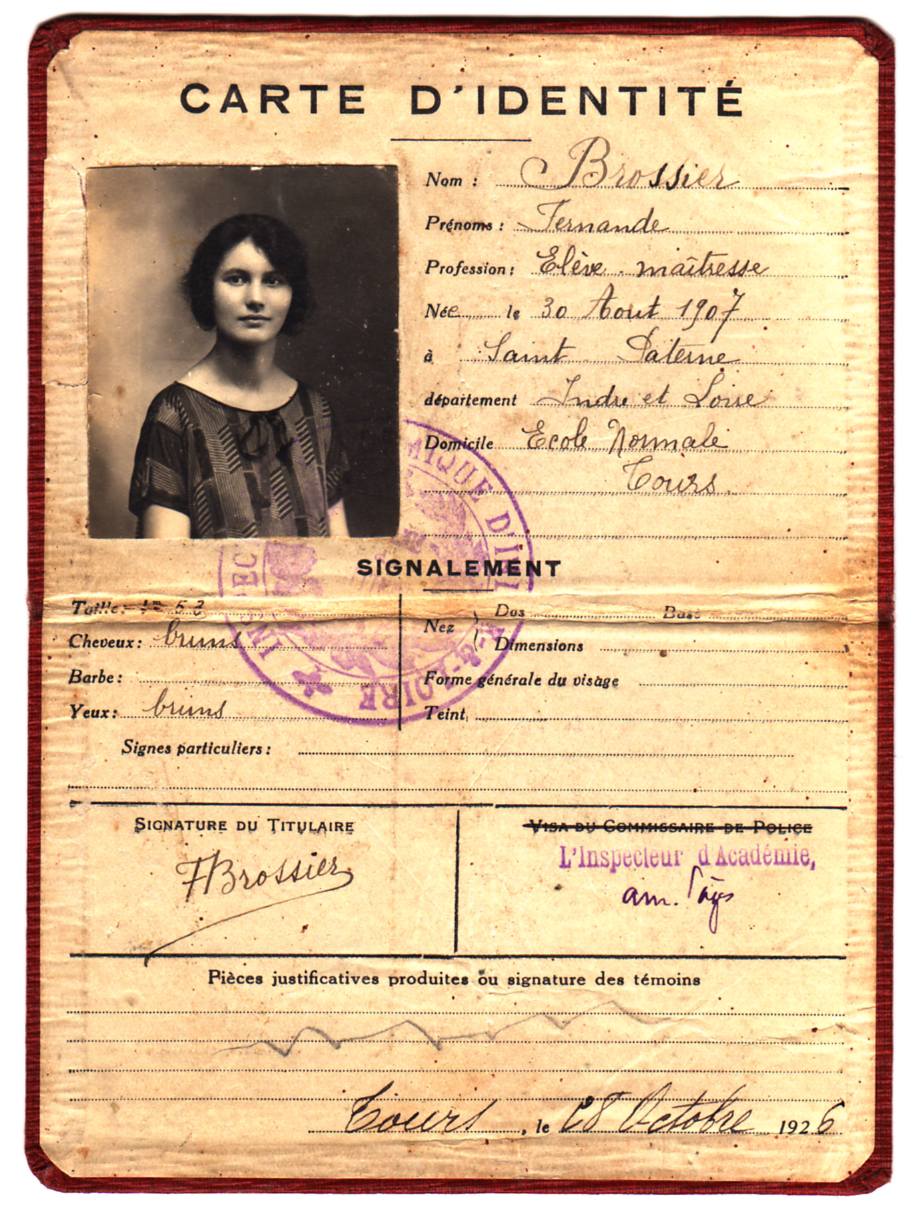 CARTE D'IDENTITÉ
Nom : Brossier
Prénoms : Fernande
Profession : Elève-maîtresse
Née le 30 Aout 1907
à Saint Paterne
département Indre et Loire
Domicile Ecole Normale
Tours
SIGNALEMENT
Taille : 1m 53
Cheveux : bruns
Barbe :
Yeux : bruns
Nez Dos Base
Dimensions
Forme générale du visage
Teint
Signes particuliers :
SIGNATURE DU TITULAIRE
FBrossier
VISA DU COMMISSAIRE DE POLICE
L'Inspecteur d'Académie,
Pièces justificatives produites ou signature des témoins
Tours, le 28 Octobre 1926